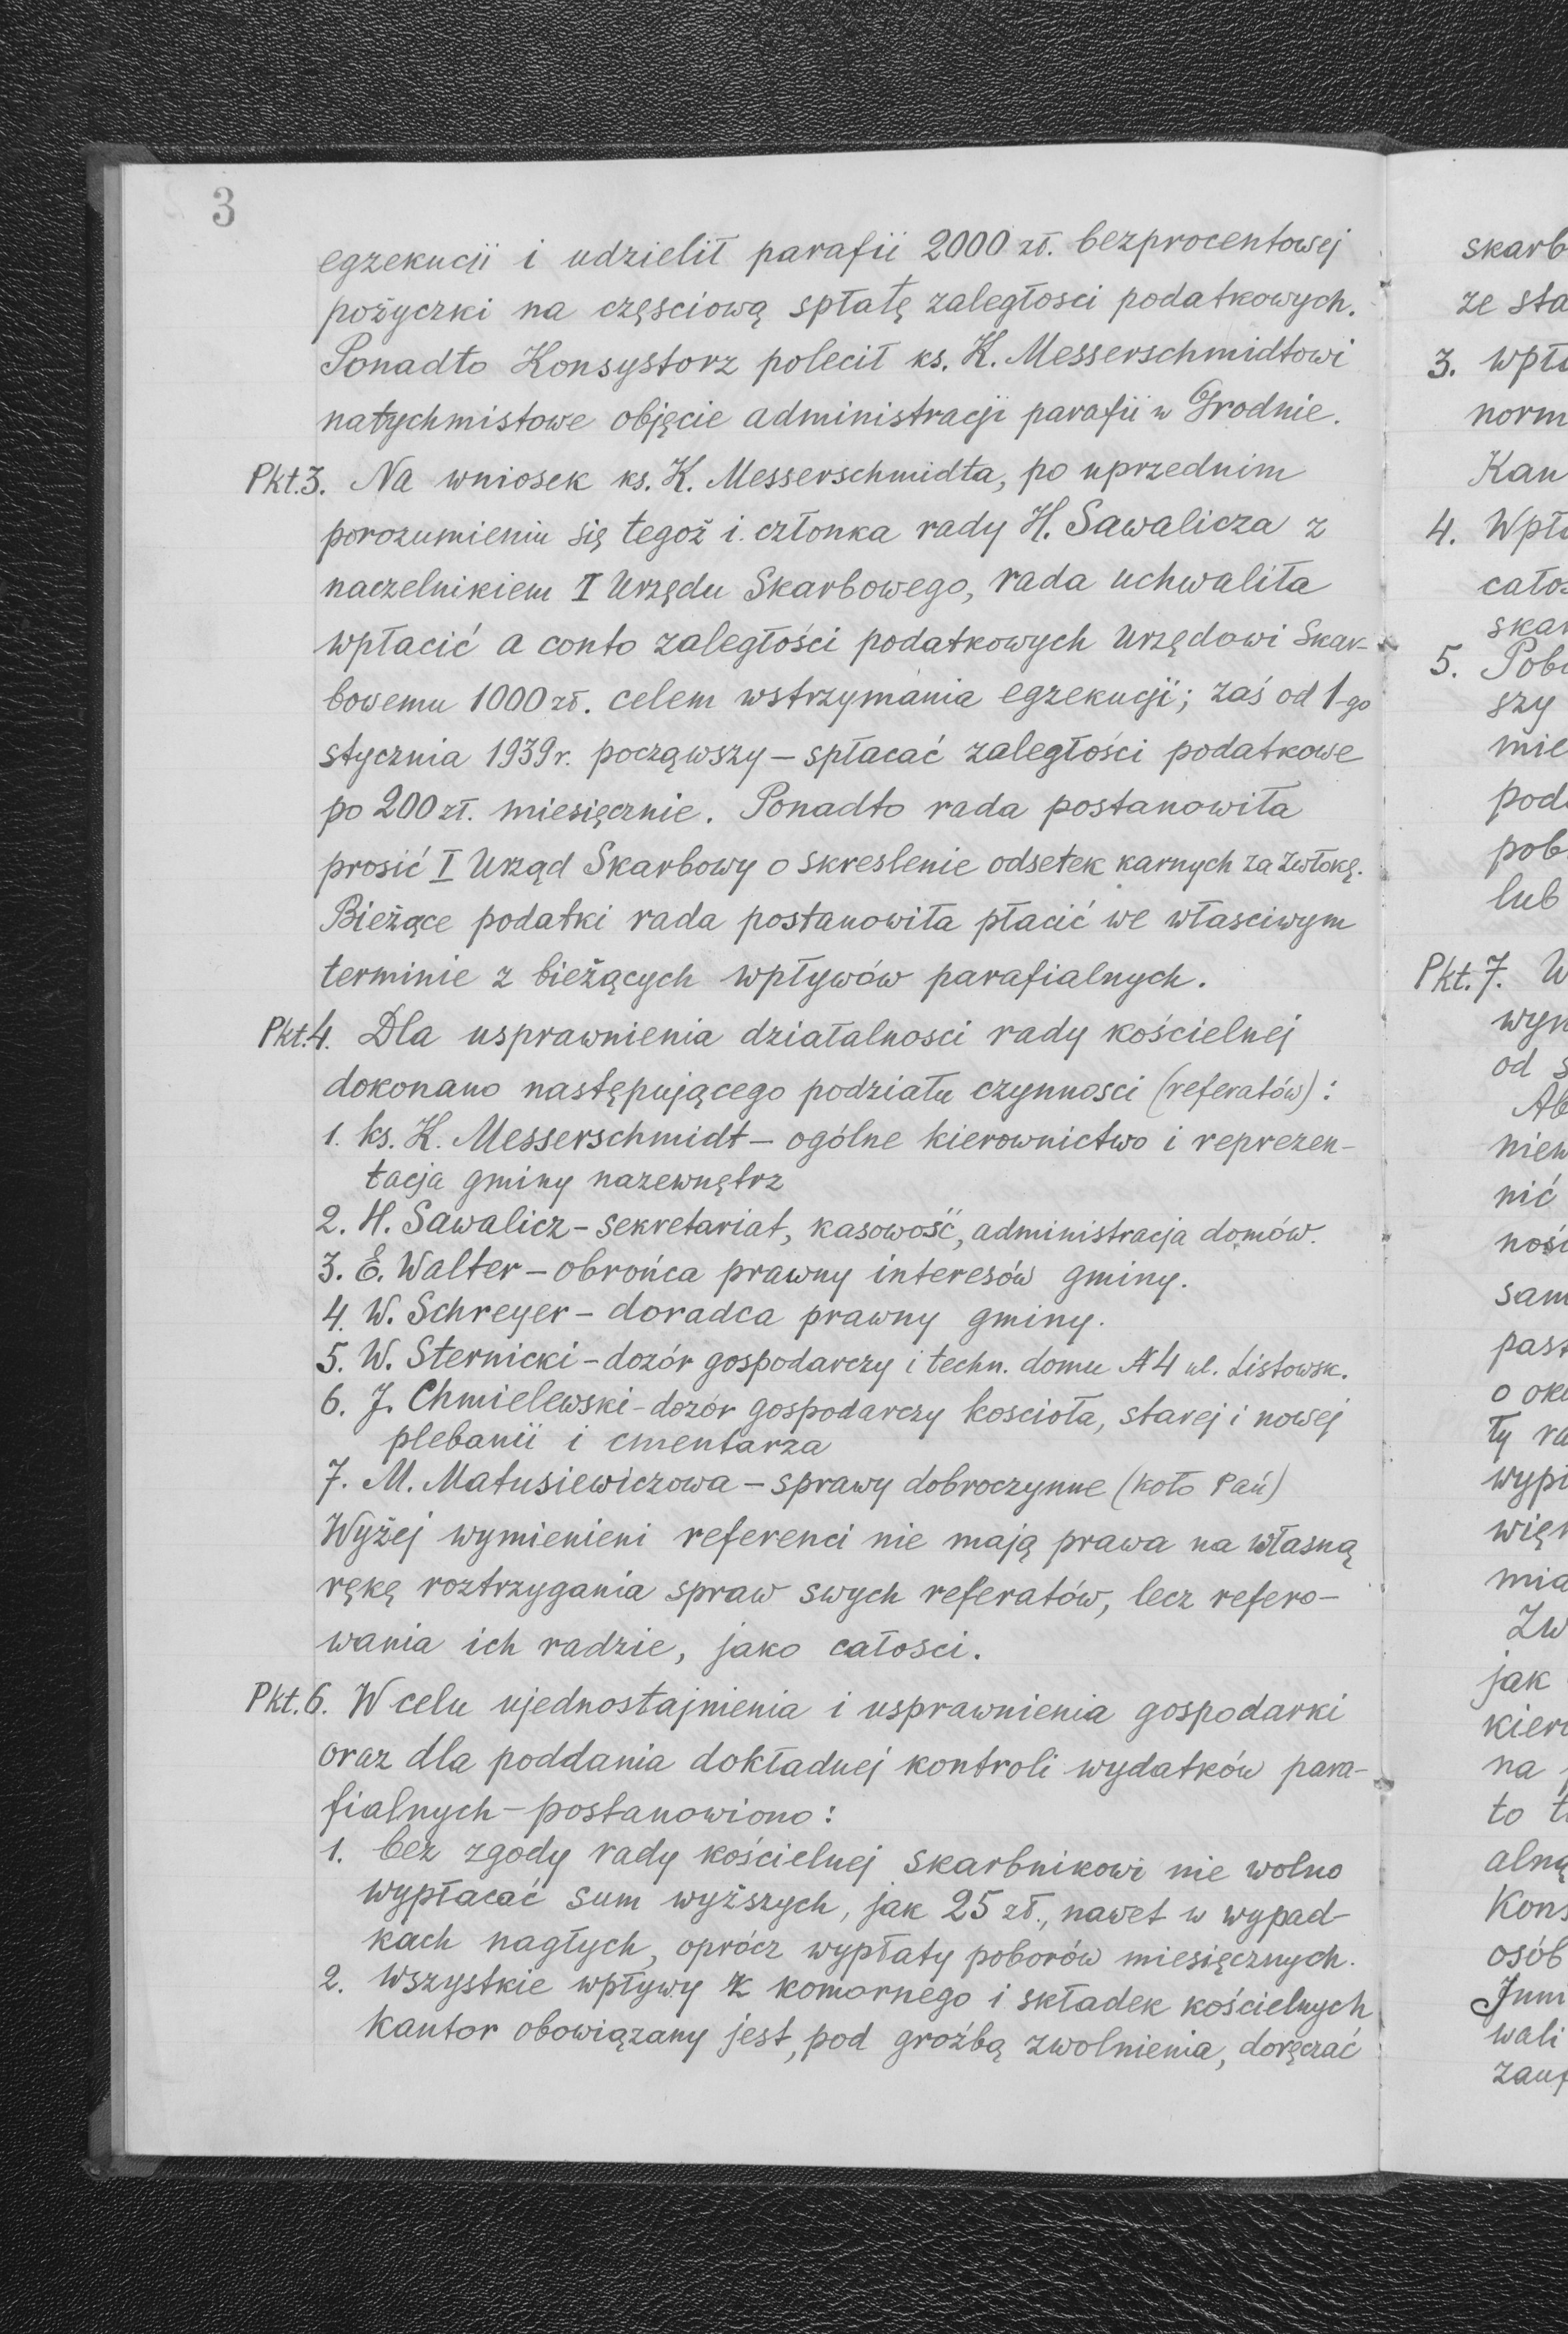 3
egzekucji i udzielił parafii 2000 zł. bezprocentowej
pożyczki na częsciową spłatę zaległosci podatkowych.
Ponadto Konsystorz polecił ks. K. Messerschmidtowi
natychmistowe objęcie administracji parafii w Grodnie.
Pkt.3. Na wniosek ks. K. Messerschmidta, po uprzednim
porozumieniu się tegoż i członka rady H. Sawalicza z
naczelnikiem I Urzędu Skarbowego, rada uchwaliła
wpłacić a conto zaległości podatkowych Urzędowi Skar-
bowemu 1000 zł. celem wstrzymania egzekucji; zaś od 1-go
stycznia 1939 r. począwszy – spłacać zaległości podatkowe
po 200 zł. miesięcznie. Ponadto rada postanowiła
prosić I Urząd Skarbowy o skreslenie odsetek karnych za zwłokę.
Bieżące podatki rada postanowiła płacić we własciwym
terminie z bieżących wpływów parafialnych.
Pkt.4. Dla usprawnienia działalnosci rady kościelnej
dokonano następującego podziału czynnosci (referatów):
1. ks. K. Messerschmidt – ogólne kierownictwo i reprezen-
tacja gminy nazewnętrz
2. H. Sawalicz – sekretariat, kasowość, administracja domów.
3. E. Walter – obrońca prawny interesów gminy.
4. W. Schreyer – doradca prawny gminy.
5. W. Sternicki – dozór gospodarczy i techn. domu № 4 ul. Listowsk.
6. J. Chmielewski – dozór gospodarczy koscioła, starej i nowej
plebanii i cmentarza
7. M. Matusiewiczowa – sprawy dobroczynne (koło Pań)
Wyżej wymienieni referenci nie mają prawa na własną
rękę roztrzygania spraw swych referatów, lecz refero-
wania ich radzie, jako całosci.
Pkt.6. W celu ujednostajnienia i usprawnienia gospodarki
oraz dla poddania dokładnej kontroli wydatków para-
fialnych – postanowiono:
1. bez zgody rady kościelnej skarbnikowi nie wolno
wypłacać sum wyższych, jak 25 zł., nawet w wypad-
kach nagłych, oprócz wypłaty poborów miesięcznych.
2. Wszystkie wpływy z komornego i składek kościelnych
kantor obowiązany jest, pod groźbą zwolnienia, doręczać
skarb
ze sta
3. Wpł
norm
Kan
4. Wpł
cało
skar
5. Pob
szy
mie
pod
pob
lub
Pkt.7. W
wyn
od s
Ab
niew
nić
nośc
sam
past
o ok
ły ra
wypi
więk
mia
Zw
jak
kiero
na
to t
alną
Kons
osób
Jnm
wali
zauf